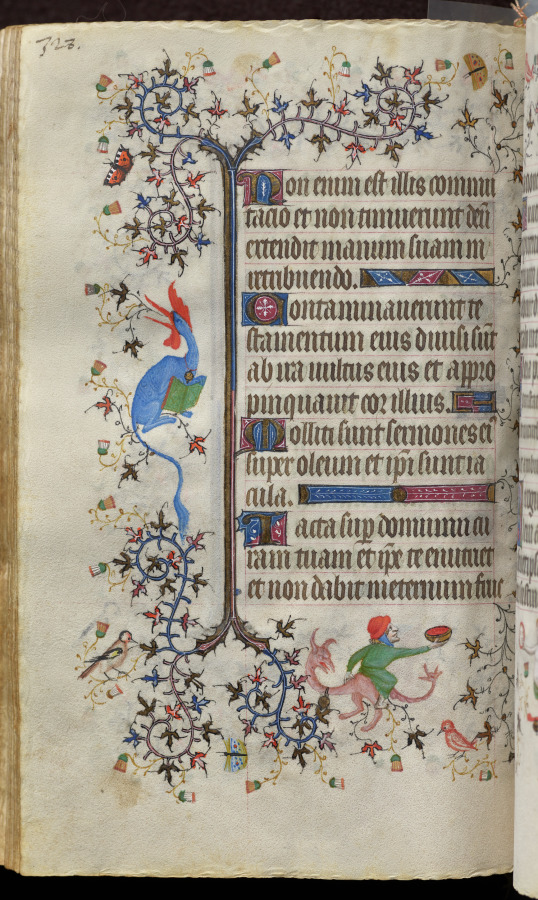 323.
Non enim est illis commu
tacio et non timuerunt deū
extendit manum suam in
retribuendo.
Contaminauerunt te
stamentum eius diuisi sūt
ab ira uultus eius et appro
pinquauit cor illius.
Molliti sunt sermones eī
super oleum et ipī sunt ia
cula.
Iacta sup dominum cu
ram tuam et ipē te enutriet
et non dabit in eternum fluc